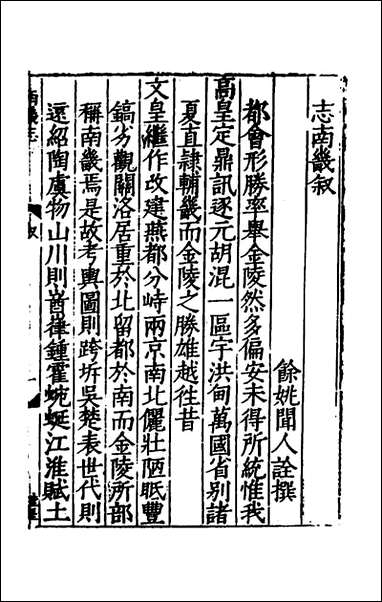 志南畿叙
餘姚聞人詮撰
都會形勝率舉金陵然多偏安未得所統惟我
高皇定鼎訊逐元胡混一區宇洪甸萬國省别諸
夏直隷輔畿而金陵之勝雄越徃昔
文皇繼作改建燕都分峙兩京南北儷壯陋眂豐
鎬劣觀關洛居重於北留都於南而金陵所部
稱南畿焉是故考輿圖則跨圻吳楚表世代則
遠紹陶虞物山川則嵤嵂鍾霍蜿蜒江淮賦土